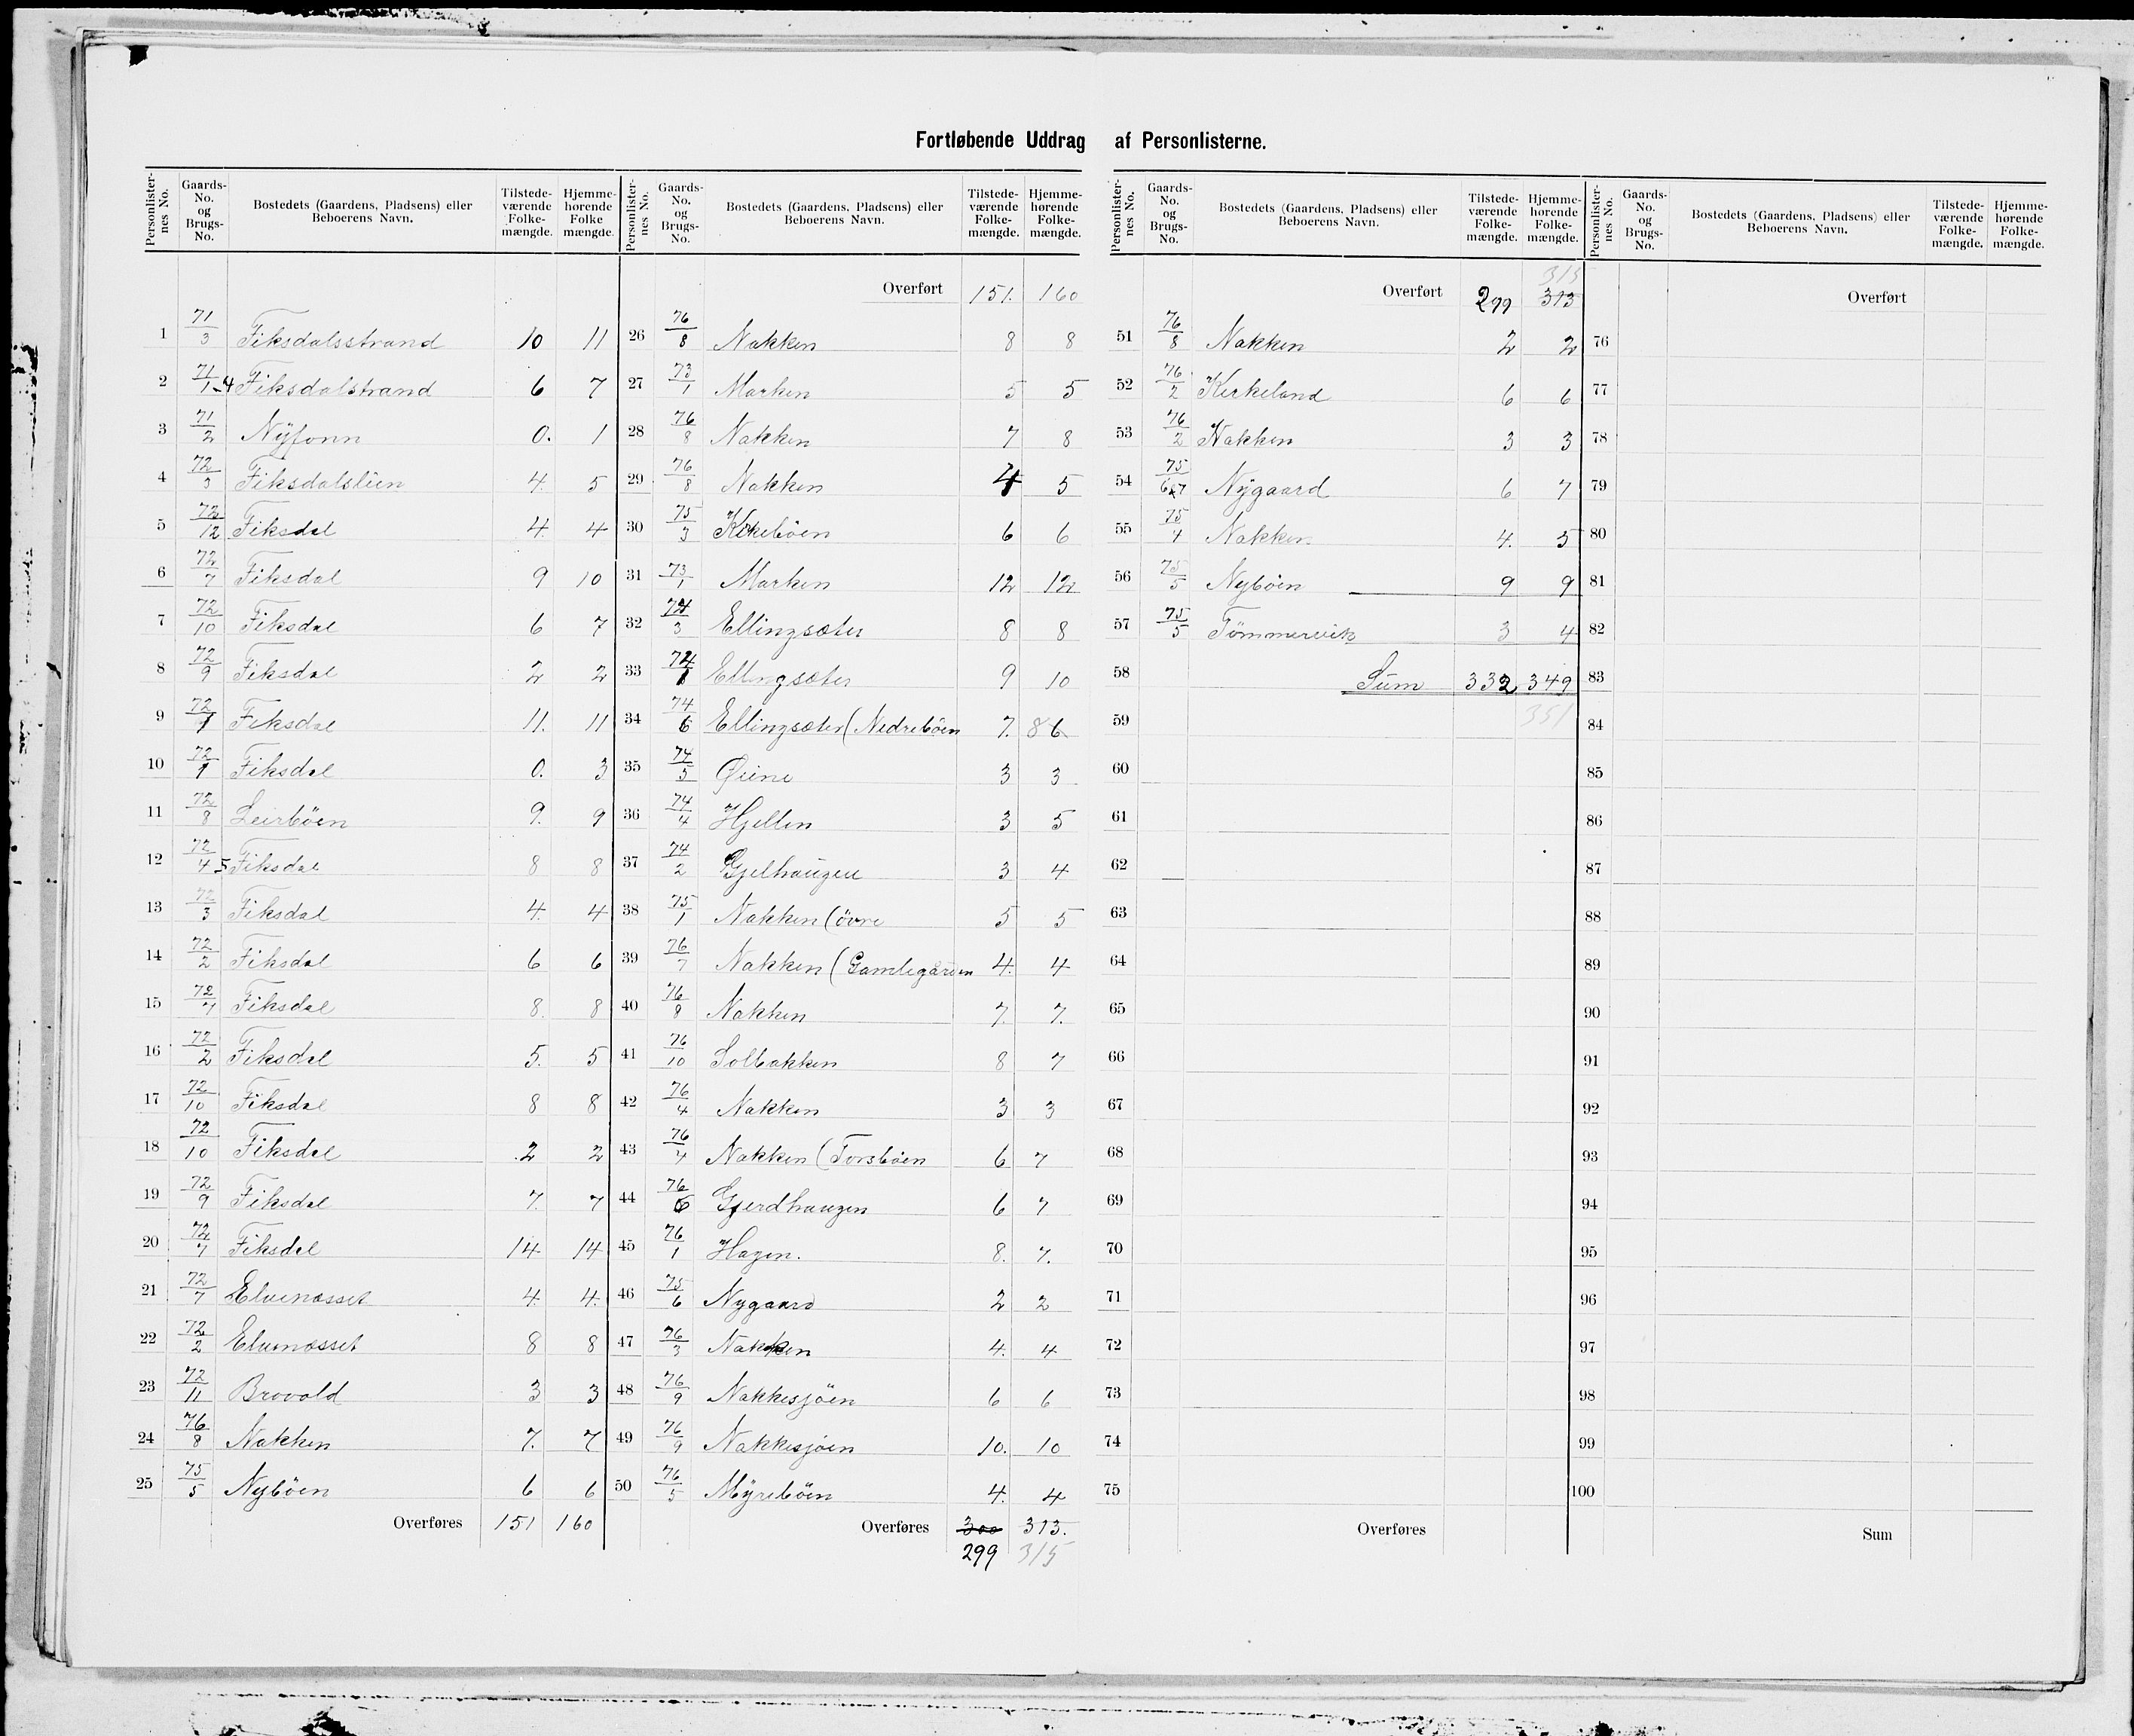 Fortløbende Uddrag af Personlisterne.
Personlister-nes No. | Gaards-No. og Brugs-No. | Bostedets (Gaardens, Pladsens) eller Beboerens Navn. | Tilstede-værende Folke-mængde. | Hjemme-hørende Folke mængde.
1 71/3 Fiksdalsstrand 10 11
2 71/1-4 Fiksdalstrand 6 7
3 71/2 Nÿfonn 0. 1
4 72/3 Fiksdalsliin 4. 5
5 72/12 Fiksdal 4. 4
6 72/7 Fiksdal 9 10
7 72/10 Fiksdal 6 7
8 72/9 Fiksdal 2 2
9 72/1 Fiksdal 11. 11
10 72/1 Fiksdal 0. 3
11 72/8 Leirböen 9. 9
12 72/4-5 Fiksdal 8 8
13 72/3 Fiksdal 4. 4
14 72/2 Fiksdal 6 6
15 72/7 Fiksdal 8. 8
16 72/2 Fiksdal 5. 5
17 72/10 Fiksdal 8 8
18 72/10 Fiksdal 2 2
19 72/9 Fiksdal 7. 7
20 72/7 Fiksdal 14 14
21 72/7 Elvenæsset 4. 4.
22 72/2 Elvenæsset 8 8
23 72/11 Brovold 3 3
24 76/8 Nakken 7. 7
25 75/5 Nyböen 6 6
Overføres 151 160
Personlister-nes No. | Gaards-No. og Brugs-No. | Bostedets (Gaardens, Pladsens) eller Beboerens Navn. | Tilstede-værende Folke-mængde. | Hjemme-hørende Folke-mængde.
Overført 151. 160
26 76/8 Nakken 8 8
27 73/1 Marken 5 5
28 76/8 Nakken 7 8
29 76/8 Nakken 4 5
30 75/3 Kirkeböen 6 6
31 73/1 Marken 12 12
32 74/3 Ellingsæter 8 8
33 74/1 Ellingsæter 9 10
34 74/6 Ellingsæter (Nedreböen 7. 8 6
35 74/5 Øiene 3 3
36 74/4 Hjellen 3 5
37 74/2 Gjelhaugen 3 4
38 75/1 Nakken (övre 5 5
39 76/7 Nakken (Gamlegården 4. 4
40 76/8 Nakken 7. 7.
41 76/10 Solbakken 8 7
42 76/4 Nakken 3 3
43 76/4 Nakken (Torsböen 6 7
44 76/6 Gjerdhaugen 6 7
45 76/1 Hagen. 8. 7.
46 75/6 Nygaard 2 2
47 76/3 Nakken 4. 4
48 76/9 Nakkesjöen 6 6
49 76/9 Nakkesjöen 10. 10
50 76/5 Mÿreböen 4. 4
Overføres 300 313.
299 315
Personlister-nes No. | Gaards-No. og Brugs-No. | Bostedets (Gaardens, Pladsens) eller Beboerens Navn. | Tilstede-værende Folke-mængde. | Hjemme-hørende Folke-mængde.
315
Overført 299 313
51 76/8 Nakken 2 2
52 76/2 Kirkeland 6 6
53 76/2 Nakken 3 3
54 75/6&7 Nÿgaard 6 7
55 75/4 Nakken 4. 5
56 75/5 Nyböen 9 9
57 75/5 Tömmervik 3 4
58 Sum 332 349
59 351
60
61
62
63
64
65
66
67
68
69
70
71
72
73
74
75
Overføres
Personlister-nes No. | Gaards-No. og Brugs-No. | Bostedets (Gaardens, Pladsens) eller Beboerens Navn. | Tilstede-værende Folke-mængde. | Hjemme-hørende Folke-mængde.
Overført
76
77
78
79
80
81
82
83
84
85
86
87
88
89
90
91
92
93
94
95
96
97
98
99
100
Sum